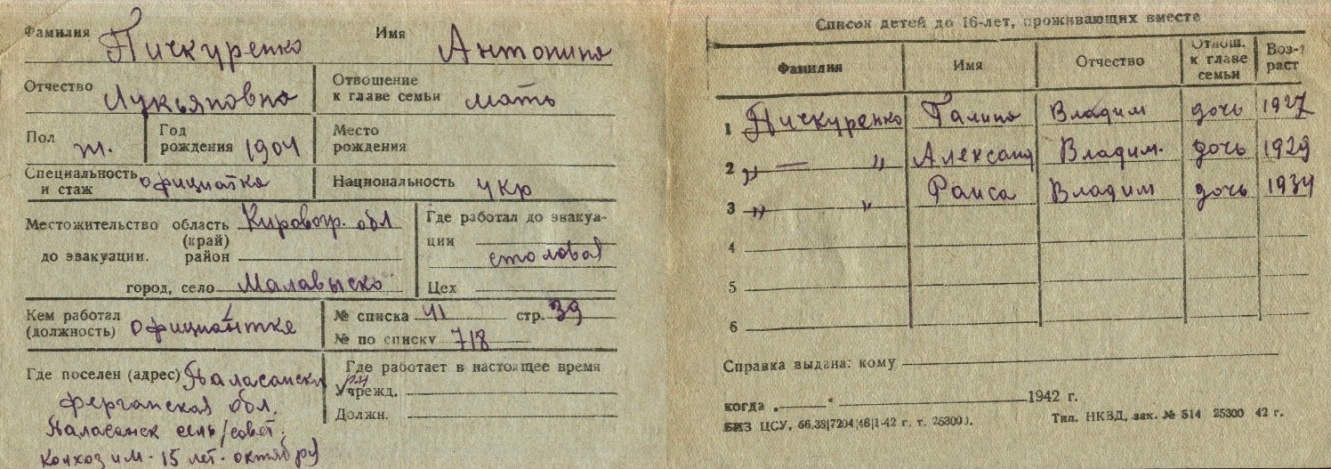 Фамилия Пичкуренко Имя Антонина
Отчество Лукьяновна Отношение к главе семьи мать
Пол ж. Год рождения 1904 Место рождения
Специальность и стаж официатка Национальность укр
Местожительство до эвакуации. область (край) Кировогр. обл
район
город, село Малавыско
Где работал до эвакуации столовая
Цех
Кем работал (должность) официантке
№ списка 41 стр. 39
№ по списку 718
Где поселен (адрес) р-н
ферганская обл.
сель/совет.
Колхоз им. 15 лет. октября
Где работает в настоящее время
Учрежд.
Должн.
Список детей до 16-лет, проживающих вместе
Фамилия Имя Отчество Отнош. к главе семьи Воз-раст
1 Пичкуренко Галина Владим дочь 1927
2 „ — „ Александ Владим. дочь 1929
3 „ „ Раиса Владим дочь 1934
4
5
6
Справка выдана: кому
когда „ “ 1942 г.
БИЗ ЦСУ, 66,38|7204|46|1-42 г. т. 25300). Тип. НКВД, зак. № 514 25300 42 г.